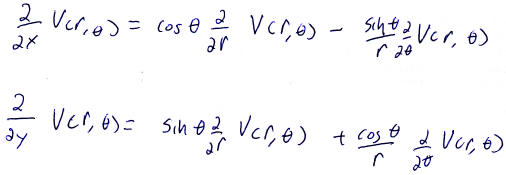 ∂/∂x V(r,θ) = cos θ ∂/∂r V(r,θ) − sin θ/r ∂/∂θ V(r,θ)
∂/∂y V(r,θ) = sin θ ∂/∂r V(r,θ) + cos θ/r ∂/∂θ V(r,θ)